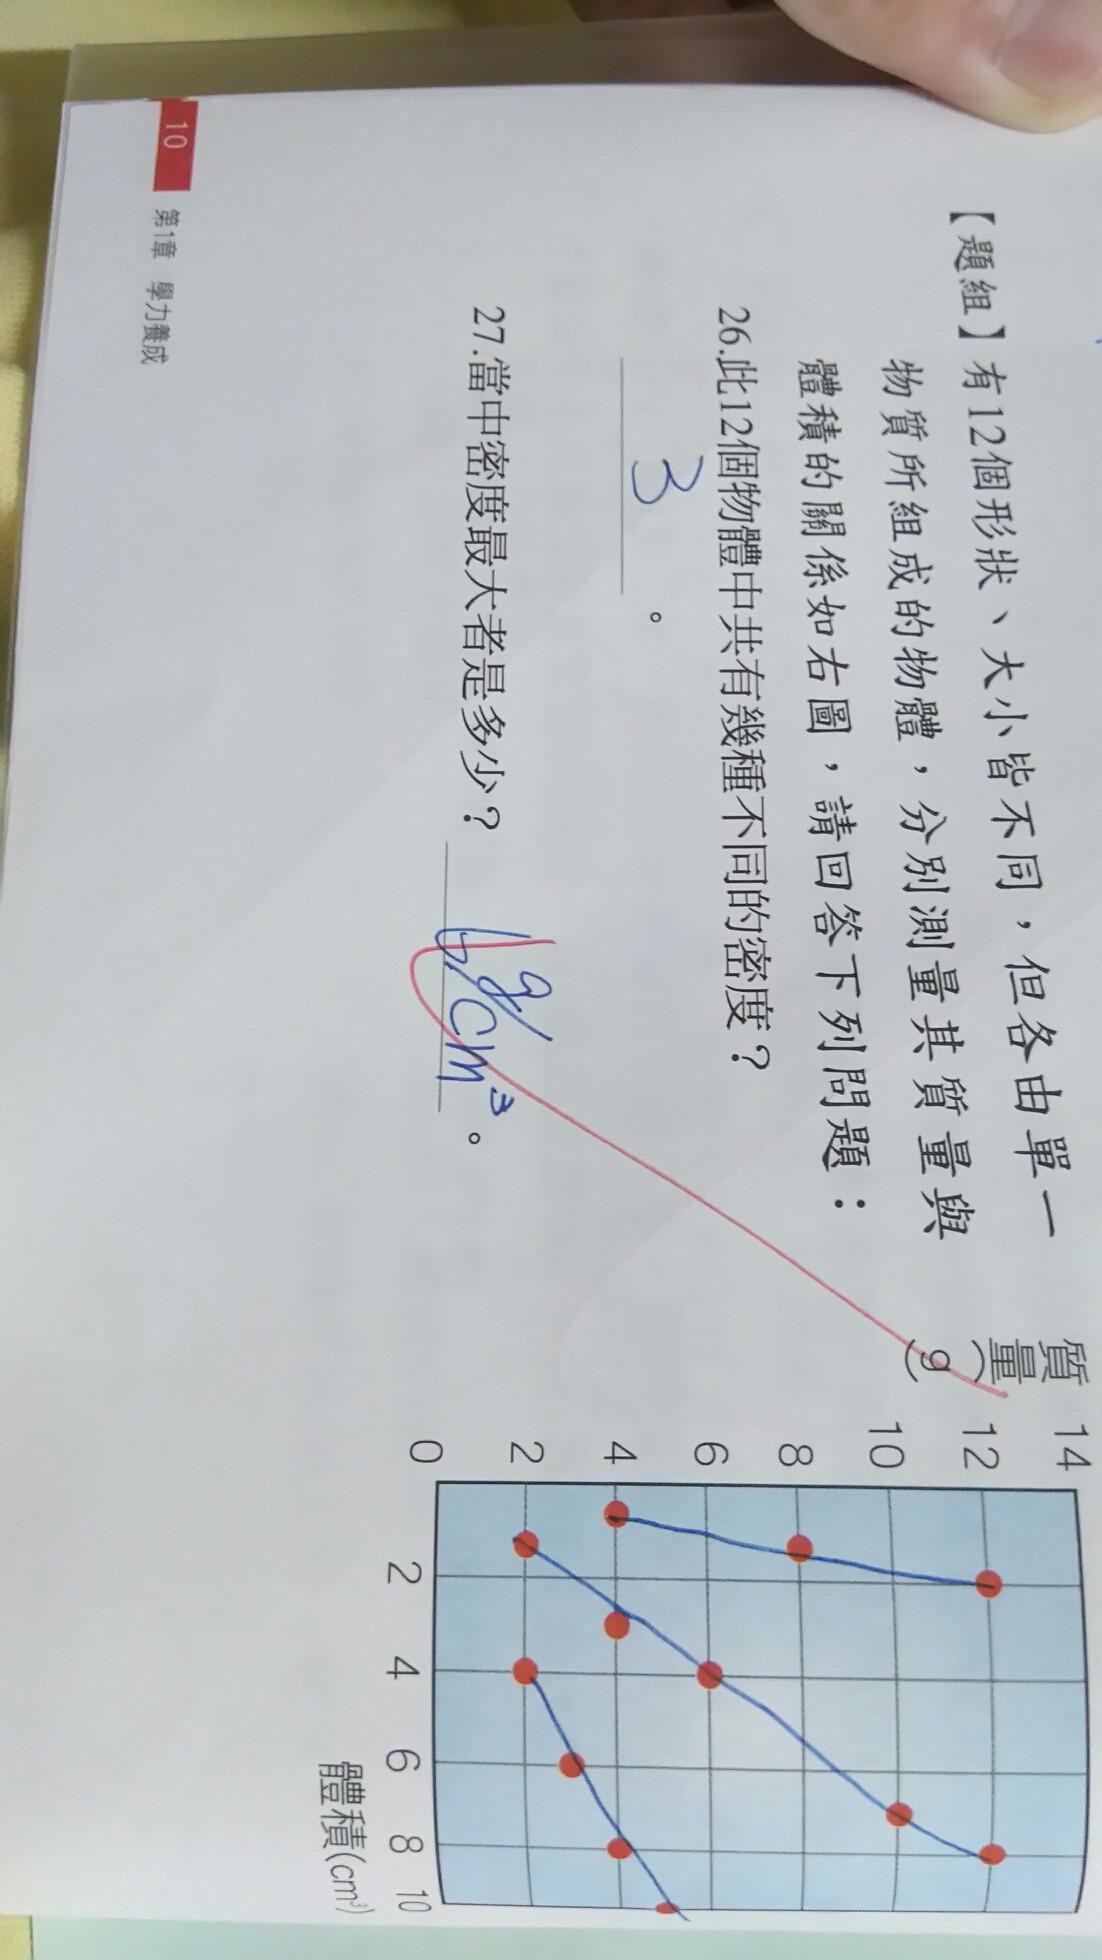 【題組】有12個形狀、大小皆不同，但各由單一
物質所組成的物體，分別測量其質量與
體積的關係如右圖，請回答下列問題：
26.此12個物體中共有幾種不同的密度？
3。
27.當中密度最大者是多少？ g/cm³。
質量(g)
14
12
10
8
6
4
2
0
2 4 6 8 10
體積(cm³)
10 第1章 學力養成